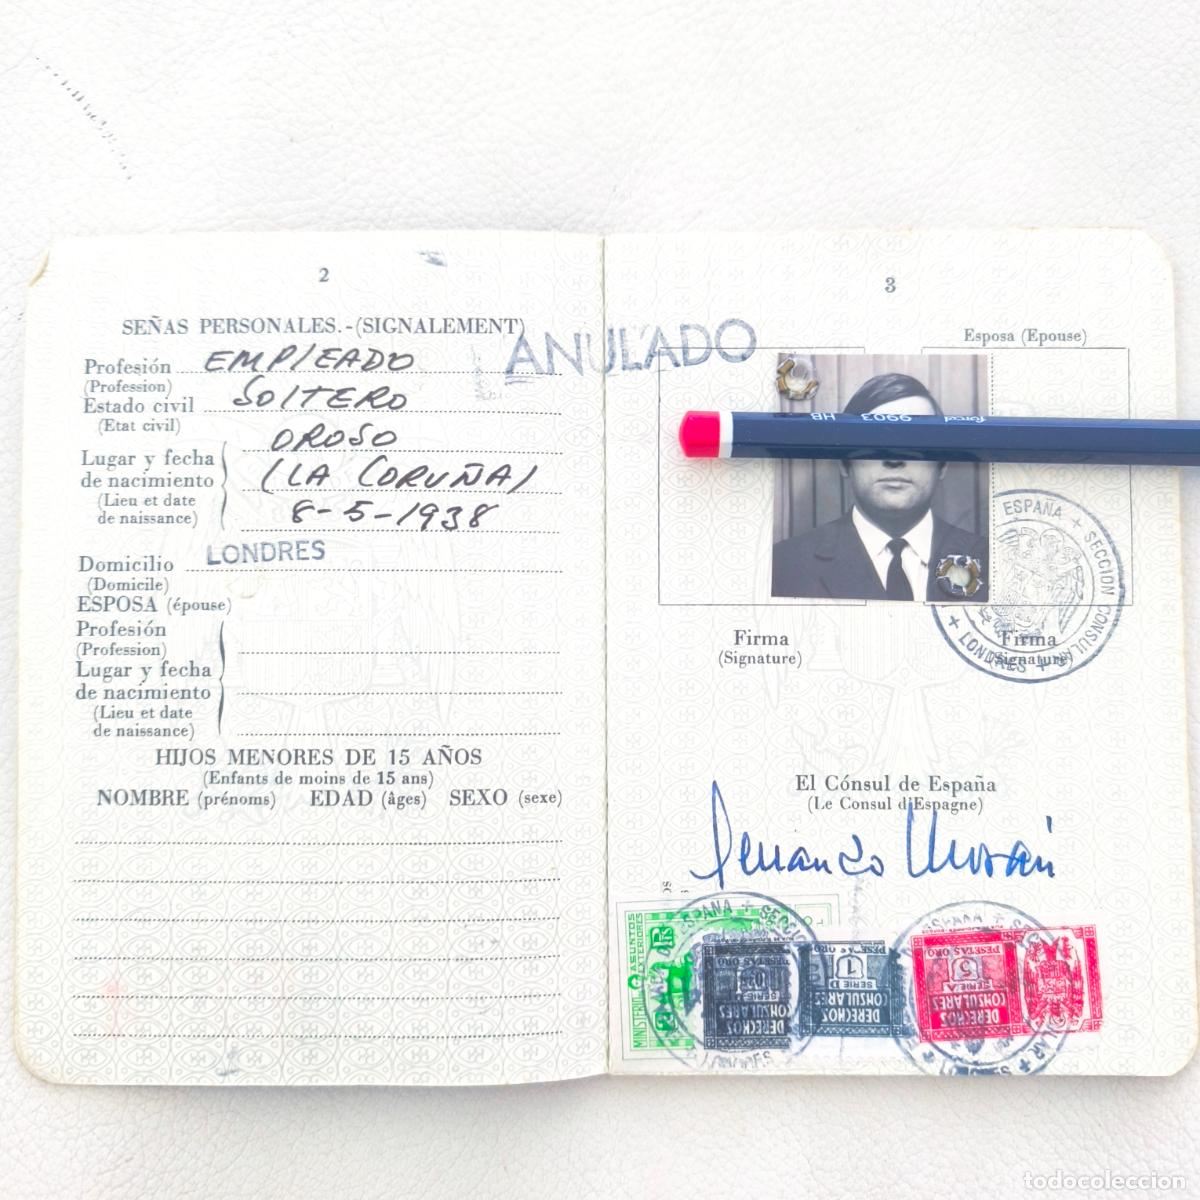 2
SEÑAS PERSONALES.-(SIGNALEMENT)
Profesión EMPLEADO
(Profession)
Estado civil SOLTERO
(Etat civil)
OROSO
Lugar y fecha
de nacimiento (LA CORUÑA)
(Lieu et date
de naissance) 8-5-1938
Domicilio LONDRES
(Domicile)
ESPOSA (épouse)
Profesión
(Profession)
Lugar y fecha
de nacimiento
(Lieu et date
de naissance)
HIJOS MENORES DE 15 AÑOS
(Enfants de moins de 15 ans)
NOMBRE (prénoms) EDAD (âges) SEXO (sexe)
ANULADO
3
Esposa (Epouse)
9903 HB
ESPAÑA + SECCION CONSULAR + LONDRES +
Firma
(Signature)
Firma
(Signature)
El Cónsul de España
(Le Consul d'Espagne)
Fernando Morán
ASUNTOS
EXTERIORES
MINISTERIO
2 PTS
ESPAÑA +
LONDRES
PESETAS ORO
SERIE A
DERECHOS
CONSULARES
PESETAS ORO
1
SERIE D
DERECHOS
CONSULARES
PESETAS ORO
5
SERIE A
DERECHOS
CONSULARES
ESPAÑA +
todocoleccion